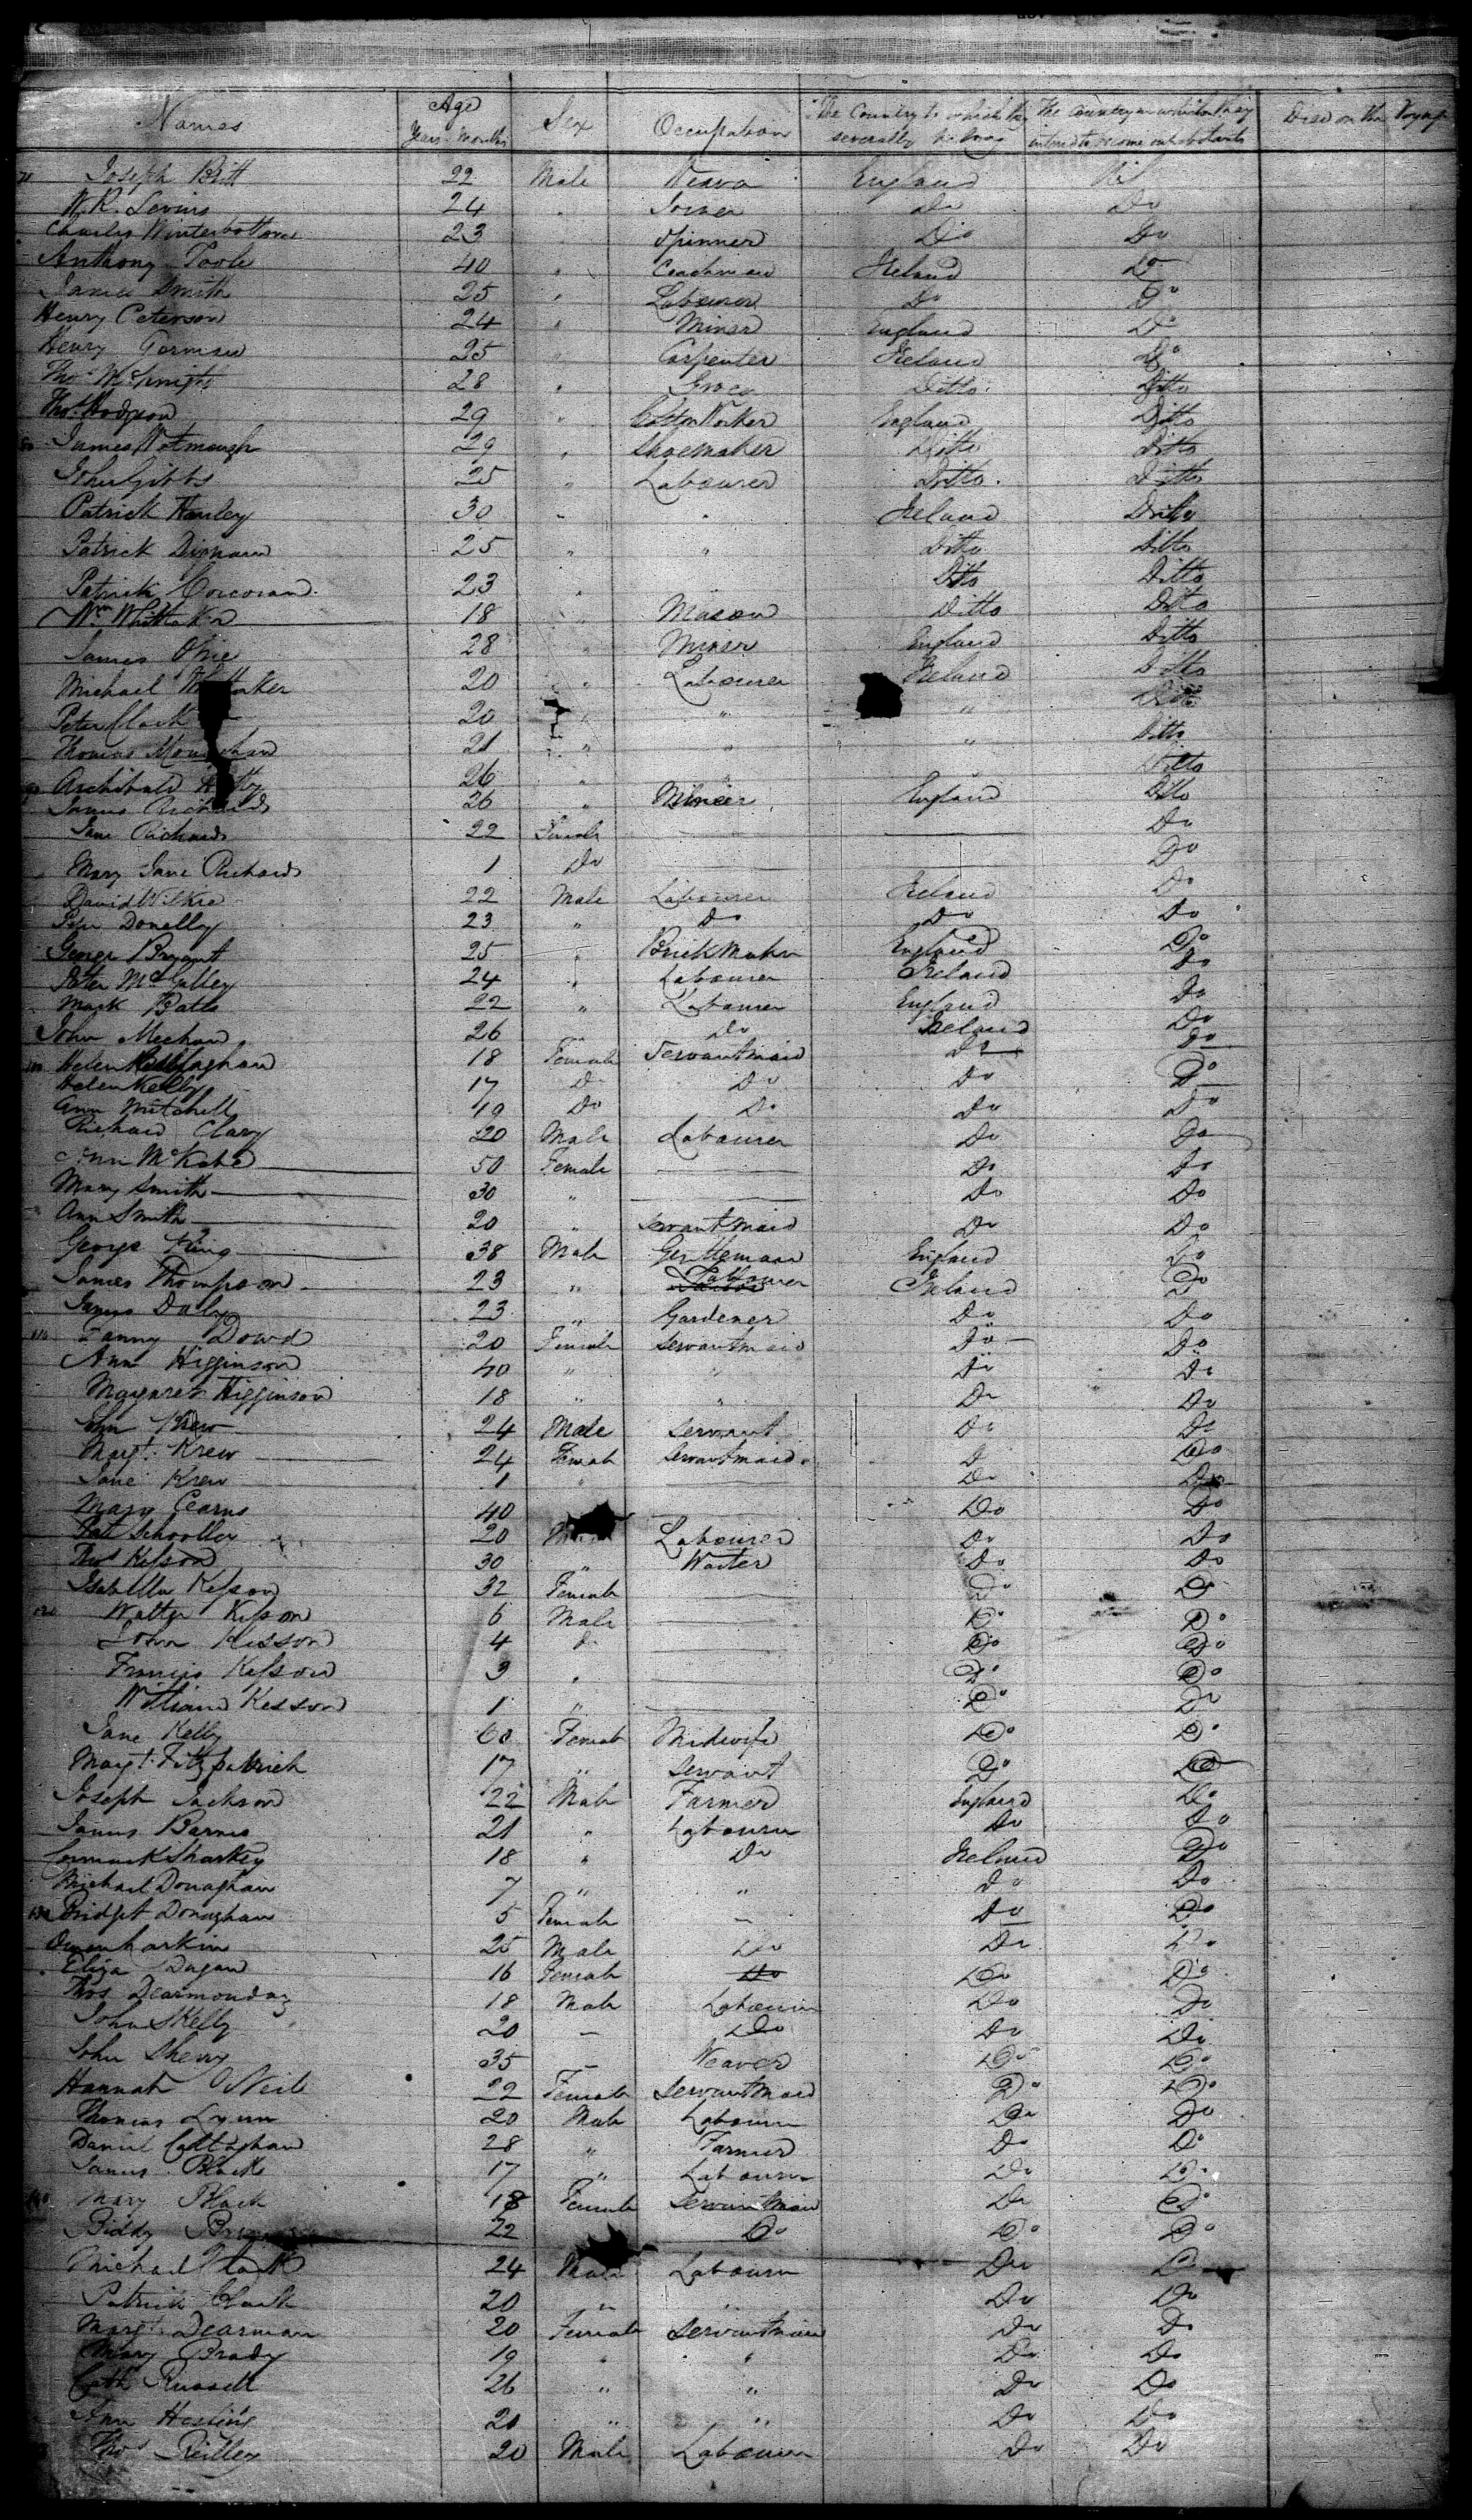 Names Age Years Months Sex Occupation The Country to which they severally belong The Country in which they intend to become inhabitants Died on the Voyage
Joseph Britt 22 Male England
W. R. 24 " Do Do
Charles Winterbottom 23 Spinner Do Do
Anthony Toole 40 " Coachman Ireland Do
James Smith 25 " Labourer Do Do
Henry Peterson 24 " Miner England Do
Henry Gorman 25 " Carpenter Ireland Do
Thos. McKnight 28 " Grocer Ditto Ditto
Thos. Hodgson 29 " Cotton Worker England Ditto
80 James Watmough 29 " Shoemaker Ditto Ditto
John Gibbs 25 " Labourer Ditto. Ditto
Patrick Hanley 30 " " Ireland Ditto
Patrick 25 " " Ditto Ditto
Patrick Corcoran 23 " Ditto Ditto
Wm Whittaker 18 Mason Ditto Ditto
James Opie 28 " Miner England Ditto
Michael 20 " Labourer Ireland Ditto
Peter Clark 20 " " " Ditto
Thomas 21 " " " Ditto
Archibald 26 " " Ditto
James Richards 26 " Miner England Ditto
Jane Richards 22 Female Do
Mary Jane Richards 1 Do Do
David Wilkie 22 Male Labourer Ireland Do
Peter Donelly 23 " Do Do Do
George Bryant 25 " Brick Maker England Do
Peter McGulley 24 " Labourer Ireland Do
Mark Batts 22 " Labourer England Do
John Meehan 26 Do Ireland Do
100 Helen 18 Female Servant maid Do Do
Helen Kelly 17 Do Do Do Do
Ann Mitchell 19 Do Do Do Do
Richard Clary 20 Male Labourer Do Do
Ann McKabe 50 Female Do Do
Mary Smith 30 " Do Do
Ann Smith 20 " Servant maid Do Do
George King 38 Male Gentleman England Do
James Thompson 23 " Labourer Ireland Do
James Daly 23 " Gardener Do Do
110 Fanny Dowd 20 Female Servant maid Do Do
Ann Higginson 40 " " Do Do
Margaret Higginson 18 " " Do Do
John Krew 24 Male Servant Do Do
Margt. Krew 24 Female Servant maid Do Do
Jane Krew 1 " Do Do
Mary Cearns 40 Do Do
Patt Schooller 20 Male Labourer Do Do
Thos Kesson 30 " Waiter Do Do
Isabella Kesson 32 Female Do Do
120 Walter Kesson 6 Male Do Do
John Kesson 4 Do Do Do
Francis Kesson 3 " Do Do
William Kesson 1 " Do Do
Jane Kelly 60 Female Midwife Do Do
Margt. Fitzpatrick 17 " Servant Do Do
Joseph Jackson 22 Male Farmer England Do
James Barnes 21 " Labourer Do Do
Cormack Sharkey 18 " Do Ireland Do
Michael Donaghan 7 " " Do Do
130 Bridget Donaghan 5 Female Do Do
Owen Larkin 25 Male Do Do Do
Eliza Dugan 16 Female Do Do Do
Thos Dearmonday 18 Male Labourer Do Do
John Skelly 20 Do Do Do
John Sherry 35 Weaver Do Do
Hannah O'Neil 22 Female Servant maid Do Do
Thomas Lynn 20 Male Labourer Do Do
Daniel Callaghan 28 " Farmer Do Do
James Black 17 " Labourer Do Do
140 Mary Black 18 Female Servant maid Do Do
Biddy 22 Do Do Do
Michael Clark 24 Male Labourer Do Do
Patrick Clark 20 " " Do Do
Margt. Dearman 20 Female Servant maid Do Do
Mary Brady 19 " " Do Do
Cath Russell 26 " " Do Do
Ann 20 " " Do Do
Thos Reilley 20 Male Labourer Do Do